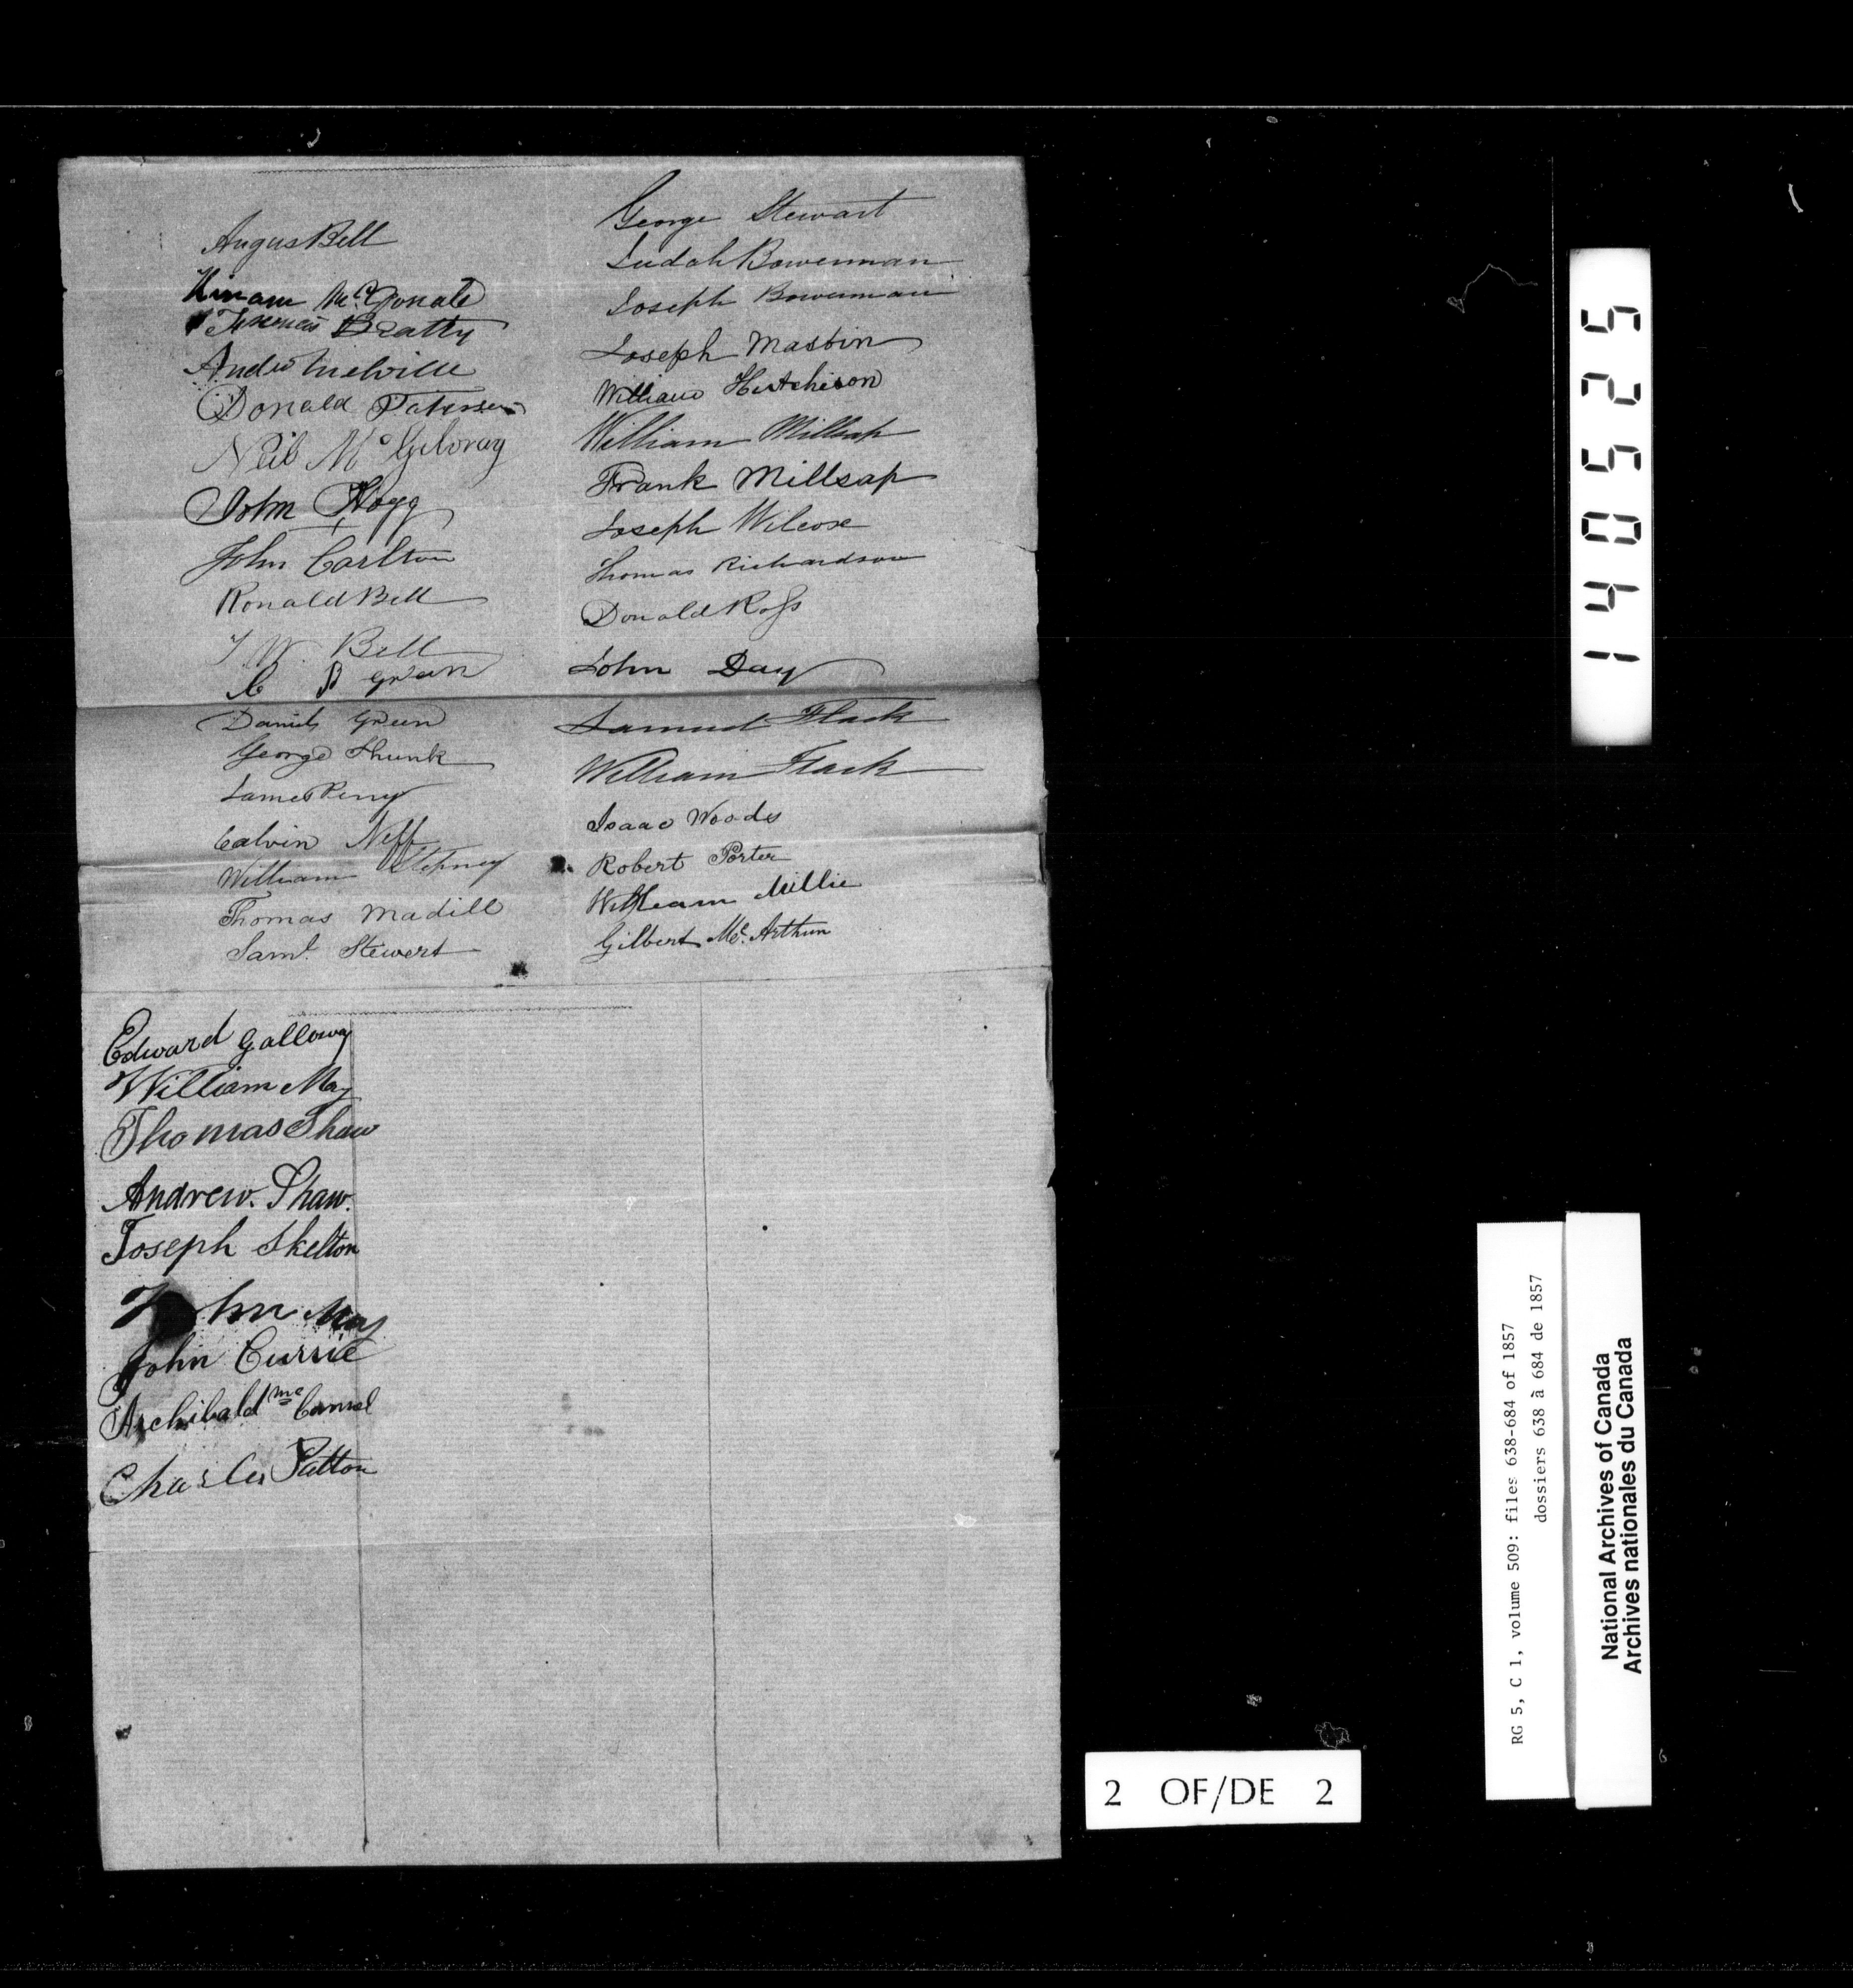 Angus Bell
Hiram McDonald
Thomas Beatty
Andw Melville
Donald Paterson
Neil McGilvray
John Hogg
John Carlton
Ronald Bell
J W. Bell
C B Green
Daniel Green
George Shunk
James Perry
Calvin Neff
William Stepney
Thomas Madill
Saml. Stewert
George Stewart
Judah Bowerman
Joseph Bowerman
Joseph Mastin
William Hutchison
William Millsap
Frank Millsap
Joseph Wilcox
Thomas Richardson
Donald Ross
John Day
Samuel Flack
William Flack
Isaac Woods
Robert Porter
William Millie
Gilbert Mc. Arthur
Edward Galloway
William May
Thomas Shaw
Andrew. Shaw.
Joseph Skelton
John May
John Currie
Archibald mc
Charles Patton
140525
2 OF/DE 2
RG 5, C 1, volume 509: files 638-684 of 1857
dossiers 638 à 684 de 1857
National Archives of Canada
Archives nationales du Canada